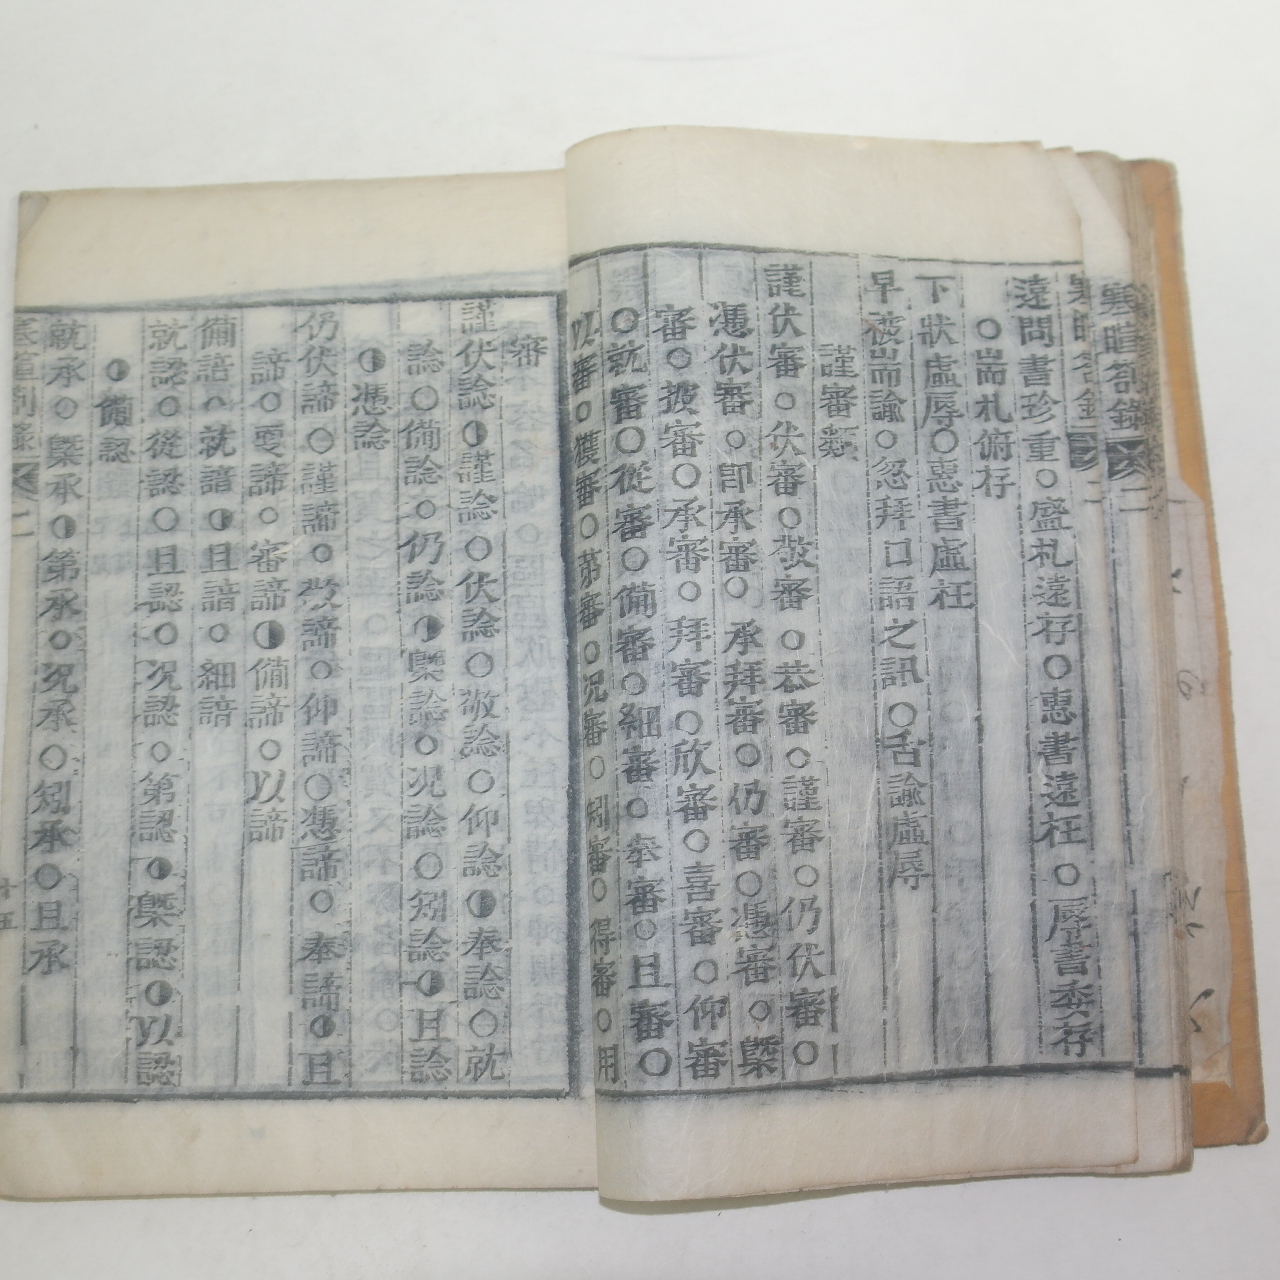 寒暄劄錄 二
遠問書珍重○盛札遠存○惠書遠枉○辱書委存
○耑札俯存
下狀虛辱○惠書虛枉
早被耑諭○忽拜口語之訊○舌諭虛辱
謹審類
謹伏審○伏審○敬審○恭審○謹審○仍伏審○
憑伏審○卽承審○承拜審○仍審○憑審○槩
審○披審○承審○拜審○欣審○喜審○仰審
○就審○從審○備審○細審○奉審○且審○
以審○獲審○第審○況審○矧審○得審○用
審
謹伏諗◑謹諗○伏諗○敬諗○仰諗◑奉諗○就
諗○備諗○仍諗◑槩諗○況諗○矧諗◑且諗
◑憑諗
仍伏諦○謹諦○敬諦○仰諦○憑諦○奉諦◑且
諦○更諦○審諦◑備諦○以諦
備諳○就諳◑且諳○細諳
就認○從認○且認○況認○第認◑槩認◑以認
◑備認
就承○槩承◑第承○況承○矧承○且承
寒暄劄錄 二 十五